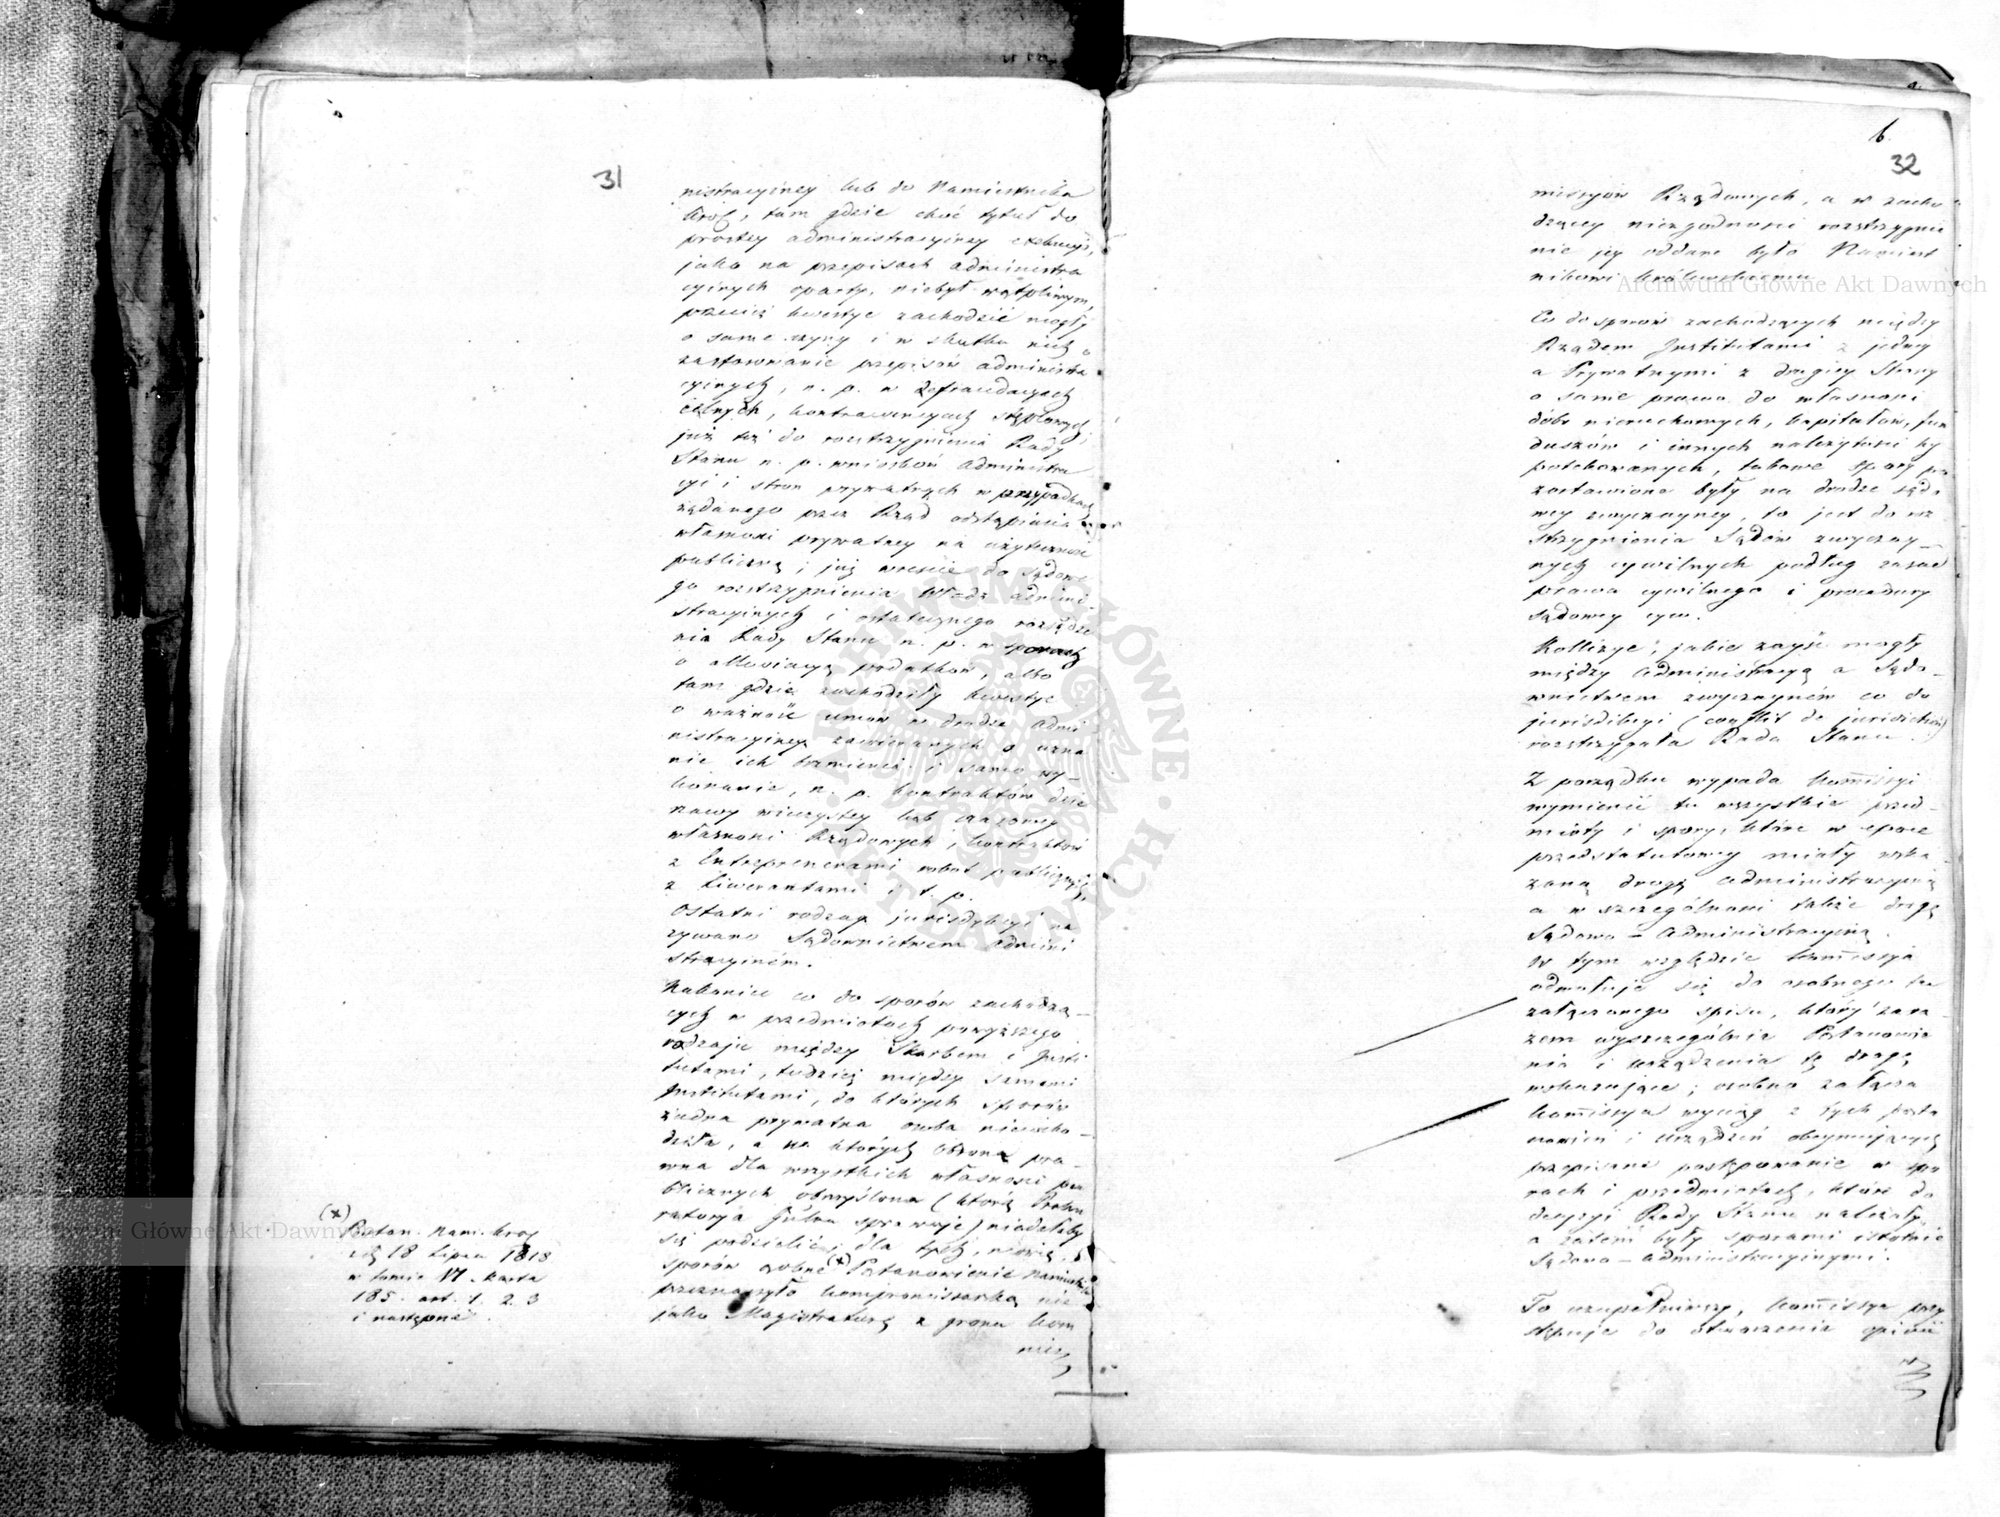 31
nistracyiney lub do Namiestnika
Król, tam gdzie choć tytuł do
prostey administracyiney exekucyi,
jako na przepisach administra
cyinych oparty, niebył wątpliwym,
przecież kwestye zachodzić mogły
o same czyny i w skutku nich o
zastosowanie przepisów administra
cyinych, n. p. w Defraudacyach
celnych, kontrawencyach stęplowych;
już też do rozstrzygnienia Rady
Stanu n. p. wniosków Administra
cyi i stron prywatnych w przypadkach
żądanego przez Rząd odstąpienia
własności prywatney na użyteczność
publiczną; już wreście do Sądowe
go rozstrzygnienia Władz admini-
stracyinych i ostatecznego rozsądze
nia Rady Stanu n. p. w sporach
o allewiacyą podatków, albo
tam gdzie zachodziły kwestye
o ważność umów w drodze admi
nistracyiney zawieranych o uzna
nie ich brzmienia i samo wy-
konanie, n. p. kontraktów dzier
żawy wieczystey lub czasowey
własności Rządowych, kontraktów
z Entreprenerami robot publicznych,
z Liwerantami i t. p.
Ostatni rodzay jurisdykcyi na
zywano Sądownictwem admini
stracyiném.
Nakoniec co do sporów zachodzą-
cych w przedmiotach powyższego
rodzaju między Skarbem i Insti
tutami, tudzież między samemi
Institutami, do których sporów
żadna prywatna osoba niewcho-
dziła, a na których obrona pra-
wna dla wszystkich własności pu
blicznych obmyślona (którą Proku
ratorya Jlna sprawuje) niedałaby
się podzielić; dla tych, mówię,
sporów osobne (x) Postanowienie Namiestnika
przeznaczyło kompromissarską niż
jako Magistraturę z grona Kom
miss
(x)
Postan. Nam. Król
z dż 18 Lipca 1818
w tomie VI. karta
185. art. 1. 2. 3
i następne.
6.
32
missyów Rządowych, a w zacho
dzącey niezgodności rozstrzygnie
nie jey oddane było Namiest
nikowi Królewskiemu.
Co do sporów zachodzących między
Rządem Institutami z jedney
a Prywatnymi z drugiey Strony
o same prawo do własności
dóbr nieruchomych, kapitałów, fun
duszów i innych należytości hy
potekowanych, takowe spory po
zostawione były na drodze sądo
wey zwyczayney, to jest do roz
strzygnienia Sądów zwyczay-
nych cywilnych podług zasad
prawa cywilnego i procedury
sądowey cyw.
Kollizye, jakie zayść mogły
między Administracyą a Sądo-
wnictwem zwyczayném co do
jurisdikcyi (conflit de jurisdiction)
rozstrzygała Rada Stanu.
Z porządku wypada Kommissyi
wymienić tu wszystkie przed-
mioty i spory, które w epoce
przedstatutowey miały wska
zaną drogę administracyiną
a w szczególności także drogę
Sądowo-Administracyiną.
W tym względzie Kommissya
odwołuje się do osobnego tu
załączonego spisu, który zara-
zem wyszczególnia Postanowie
nia i urządzenia tę drogę
wskazujące; osobno załącza
Kommissya wyciąg z tych posta
nowień i urządzeń obeymujących
przepisane postępowanie w spo
rach i przedmiotach, które do
decyzyi Rady Stanu należały,
a zatém były sporami istotnie
Sądowo-administracyinymi.
To uzupełniwszy, Kommissya przy
stępuje do otworzenia opinii